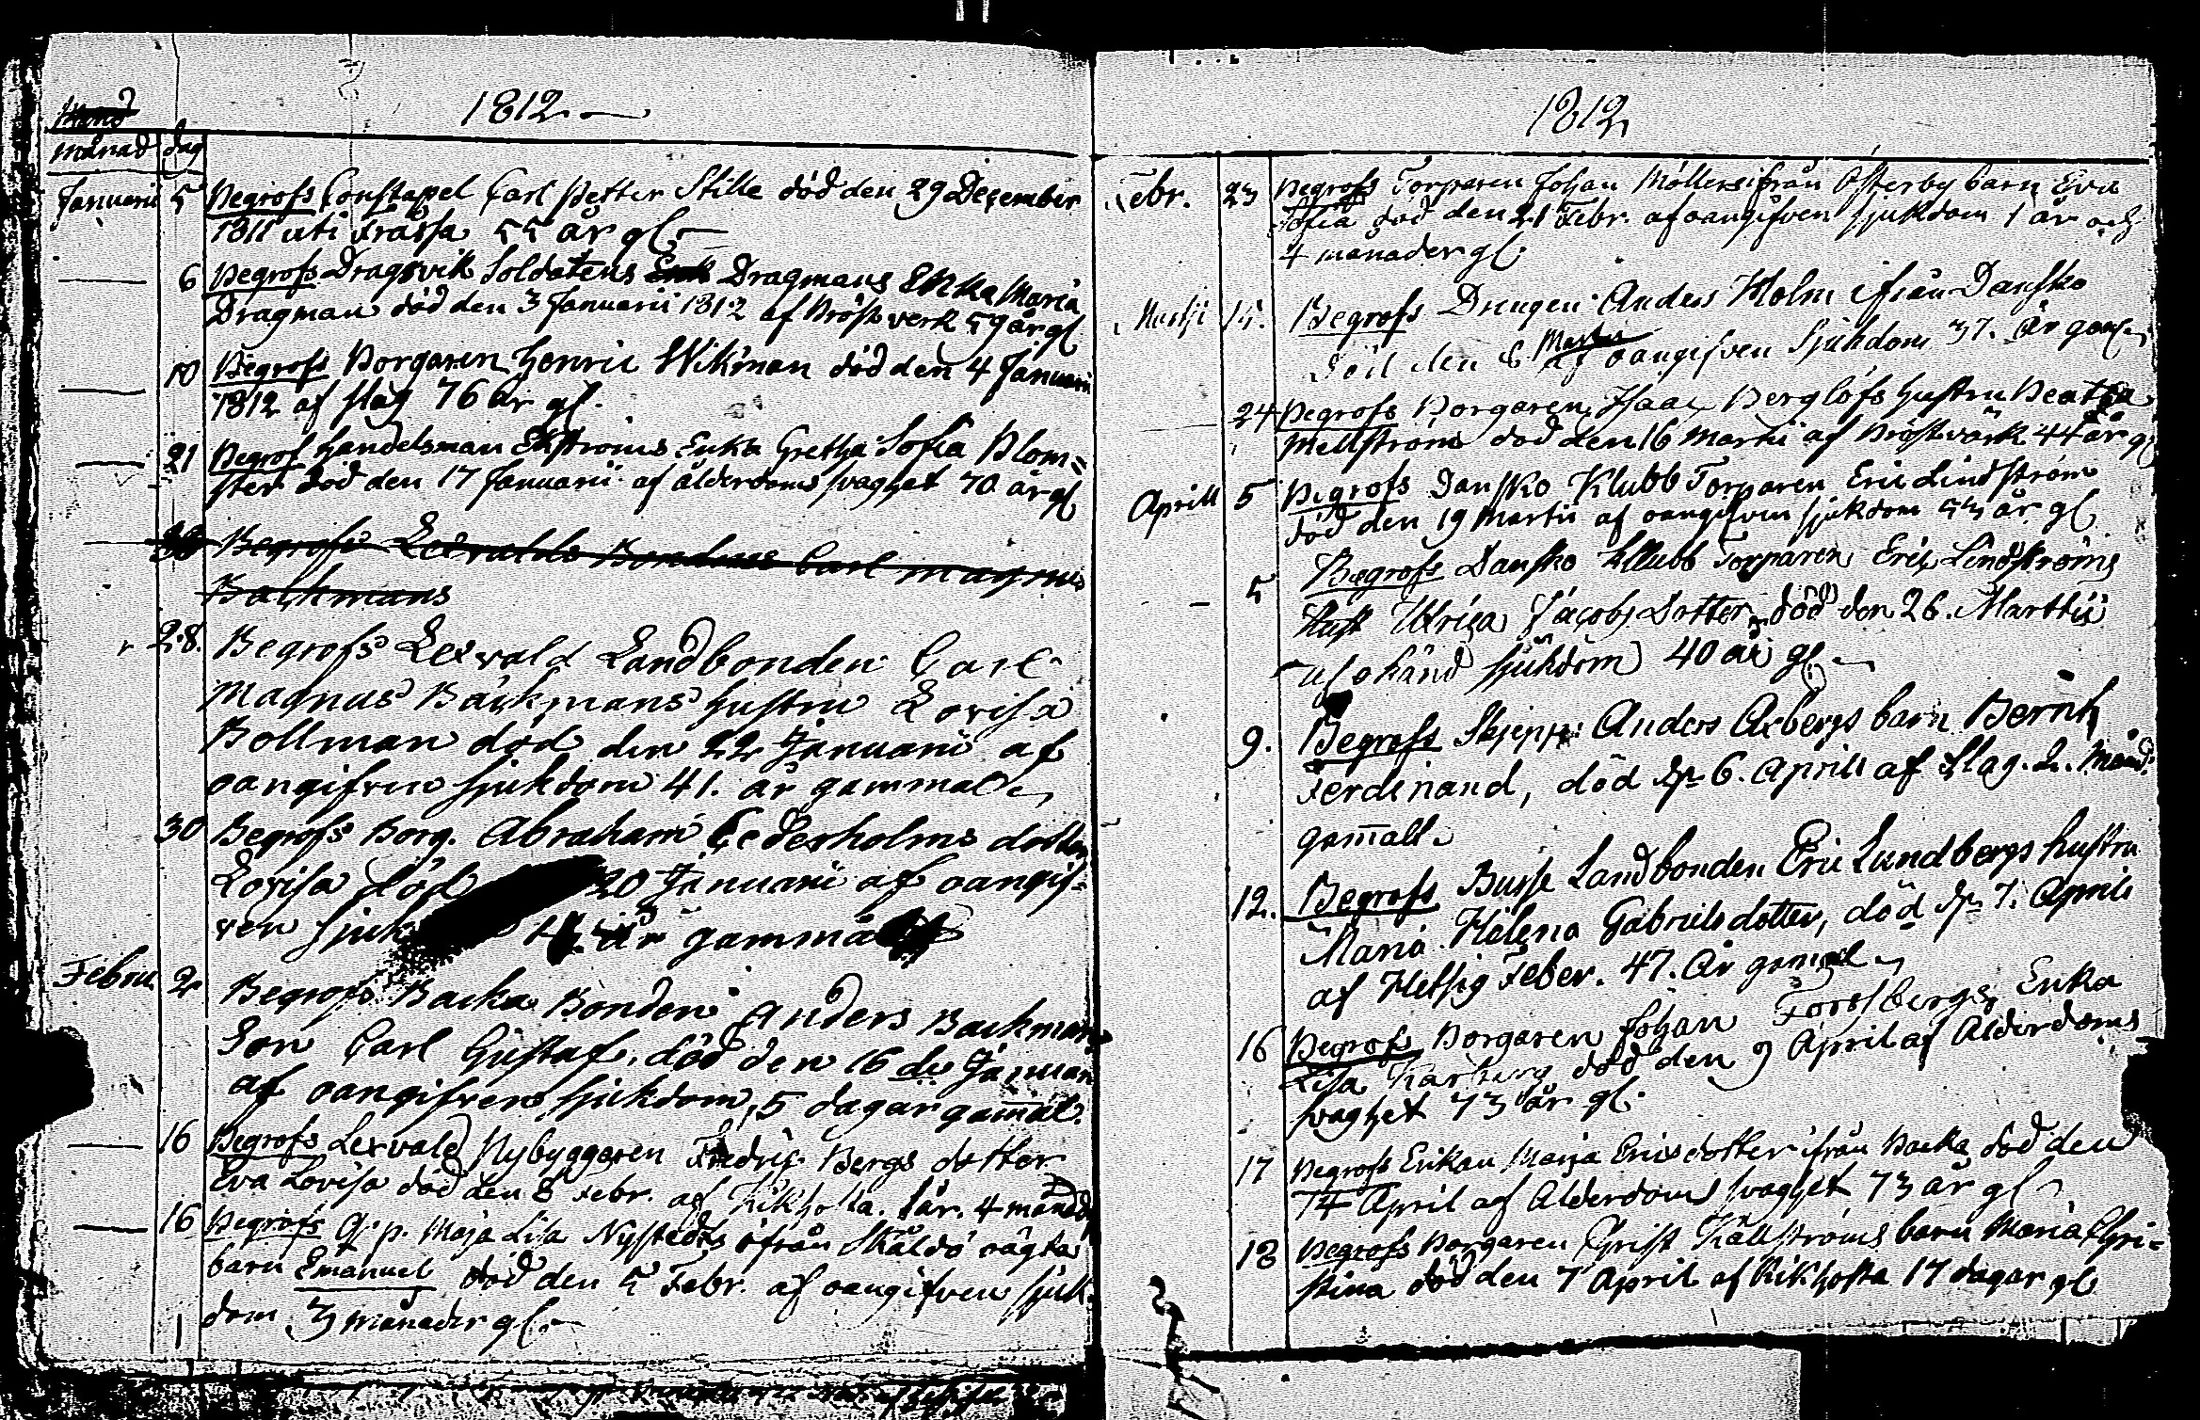 1812.
Månad dag
Januarii 5 Begrofs Constapel Carl Petter Stille död den 29 December
1811 uti Frassa 55 år gl.
6 Begrofs Dragsvik Soldatens Enk Dragmans Enka Maria
Dragman död den 3 Januarii 1812 af Bröstverk 59 år gl.
10 Begrofs Borgaren Henric Wikman död den 4 Januarii
1812 af slag 76 år gl.
21 Begrof Handelsman Ekströms Enka Gretha Sofia Blom=
ster död den 17 Januarii af ålderdoms svaghet 70 år gl
30 Begrofs Lexvalds Bondens Carl Magnus
Backmans
28. Begrofs Lexvald Landbonden Carl
Magnus Backmans hustru Lovisa
Bollman död den 22 Januarii af
oangifven sjukdom 41. år gammal
30 Begrofs Borg. Abraham Cederholms dotter
Lovisa död 20 Januarii af oangif=
ven sjuk år gammal
Februa 2 Begrofs Backa Bonden Anders Backmans
Son Carl Gustaf, död den 16 de Januari
af oangifven sjukdom, 5 dagar gamal.
16 Begrofs Lexvald Nybyggaren Fredric Bergs dotter
Eva Lovisa död den 8 Febr. af Kikhosta. 1 år. 4 månad
16 Begrofs Qsp. Maja Lisa Nystedts ifrån Skåldö oägta
barn Emanuel död den 5 Febr. af oangifven sjuk
dom 3 månader gl.
1812
Febr. 23 Begrofs Torparen Johan Möllers ifrån Österby barn Eva
Sofia död den 21 Febr. af oangifven sjukdom 1 år och
4 månader gl.
Martii 15. Begrofs Drengen Anders Holm ifrån Dansko
död den 8 Martii af oangifven Sjukdom 37. År gamal
24 Begrofs Borgaren Isaac Berglöfs hustru Beatha
Mellström död den 16 Martii af Bröstvärk 44 år gl
Aprill 5 Begrofs Dansko Klubb Torparen Eric Lindström
död den 19 Martii af oangifven sjukdom 53 år gl
5 Begrofs Dansko Kllubb Torparen Eric Lindströms
Hust Ulrica Jacobs Dotter, död den 26. Martii
af okänd sjukdom 40 år gl.
9. Begrofs Skjepp: Anders Axbergs barn Bernh
Ferdinand, död d. 6. Aprill af Slag. 2. Månd.
gamalt.
12. Begrofs Busse Landbonden Eric Lundbergs hustru
Maria Helena Gabrielsdotter, död d. 7. Aprill
af Hetsig Feber. 47. År gamal
16 Begrofs Borgaren Johan Forssbergs Enka
Lisa Karberg död den 9 April af Alderdoms
svaghet 73 år gl.
17 Begrofs Enkan Maja Ericsdotter ifrån Backa död den
14 April af Alderdoms svaghet 73 år gl
18 Begrofs Borgaren Christ Källströms barn Maria Chri=
stina död den 7 April af Kikhosta 17 dagar gl